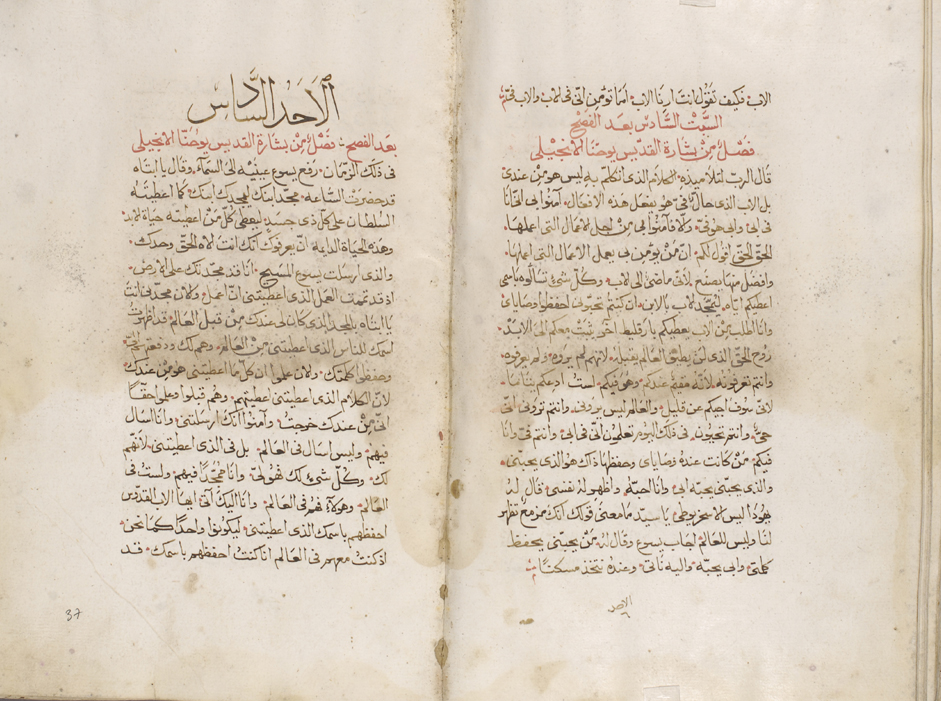 الاب فكيف تقول انت ارنا الاب اما تؤمن اني في الاب والاب في
السبت السادس بعد الفصح
فصل من بشارة القديس يوحنا الانجيلي
قال الرب لتلاميذه الكلام الذي اتكلم به ليس هو من عندي
بل الاب الذي حال في هو يفعل هذه الافعال آمنوا بي اني انا
في ابي وابي هو في والا فآمنوا بي من اجل الاعمال التي اعملها
الحق الحق اقول لكم ان من يؤمن بي يعمل الاعمال التي اعملها
وافضل منها يصنع لاني ماضي الى الاب وكل شي تسالوه باسمي
اعطيكم اياه ليتمجد الاب بالابن ان كنتم تحبوني احفظوا وصاياي
وانا اطلب من الاب يعطيكم بارقليط اخر يثبت معكم الى الابد
روح الحق الذي لن يطيق العالم يقبله لانهم لم يروه ولم يعرفوه
وانتم تعرفونه لانه مقيم عندكم وهو فيكم لست ادعكم يتاما
لاني سوف اجيكم عن قليل والعالم ليس يروني وانتم تروني اني
حي وانتم تحيون في ذلك اليوم تعلمون اني في ابي وانتم في وانا
فيكم من كانت عنده وصاياي وحفظها ذاك هو الذي يحبني
والذي يحبني يحبه ابي وانا احبه واظهر له نفسي قال له
يهوذا ليس الاسخريوطي يا سيد ما معنى قولك انك مزمع تظهر
لنا وليس للعالم اجاب يسوع وقال له من يحبني يحفظ
كلمتي وابي يحبه واليه ناتي وعنده نتخذ مسكنا
الاحد
٦
الاحد السادس
بعد الفصح فصل من بشارة القديس يوحنا الانجيلي
في ذلك الزمان رفع يسوع عينيه الى السماء وقال يا ابتاه
قد حضرت الساعة مجد ابنك ليمجدك ابنك كما اعطيته
السلطان على كل ذي جسد ليعطي كل من اعطيته حياة الابد
وهذه الحياة الدايمة ان يعرفوك انك انت الاه الحق وحدك
والذي ارسلت يسوع المسيح انا قد مجدتك على الارض
اذ قد تممت العمل الذي اعطيتني ان اعمل والان مجدني انت
يا ابتاه بالمجد الذي كان لي عندك من قبل العالم قد اظهرت
اسمك للناس الذي اعطيتني من العالم وهم لك ودفعتهم لي
وحفظوا كلمتك والان علموا ان كل ما اعطيتني هو من عندك
لان الكلام الذي اعطيتني اعطيتهم وهم قبلوا وعلموا حقا
اني من عندك خرجت وآمنوا انك ارسلتني وانا اسال
فيهم وليس اسال في العالم بل في الذي اعطيتني لانهم
لك وكل شي لك فهو لي وانا ممجدا فيهم ولست في
العالم وهولاء هم في العالم وانا اليك آتي ايها الاب القديس
احفظهم باسمك الذي اعطيتني ليكونوا واحدا كما نحن
اذ كنت معهم في العالم انا كنت احفظهم باسمك قد
37